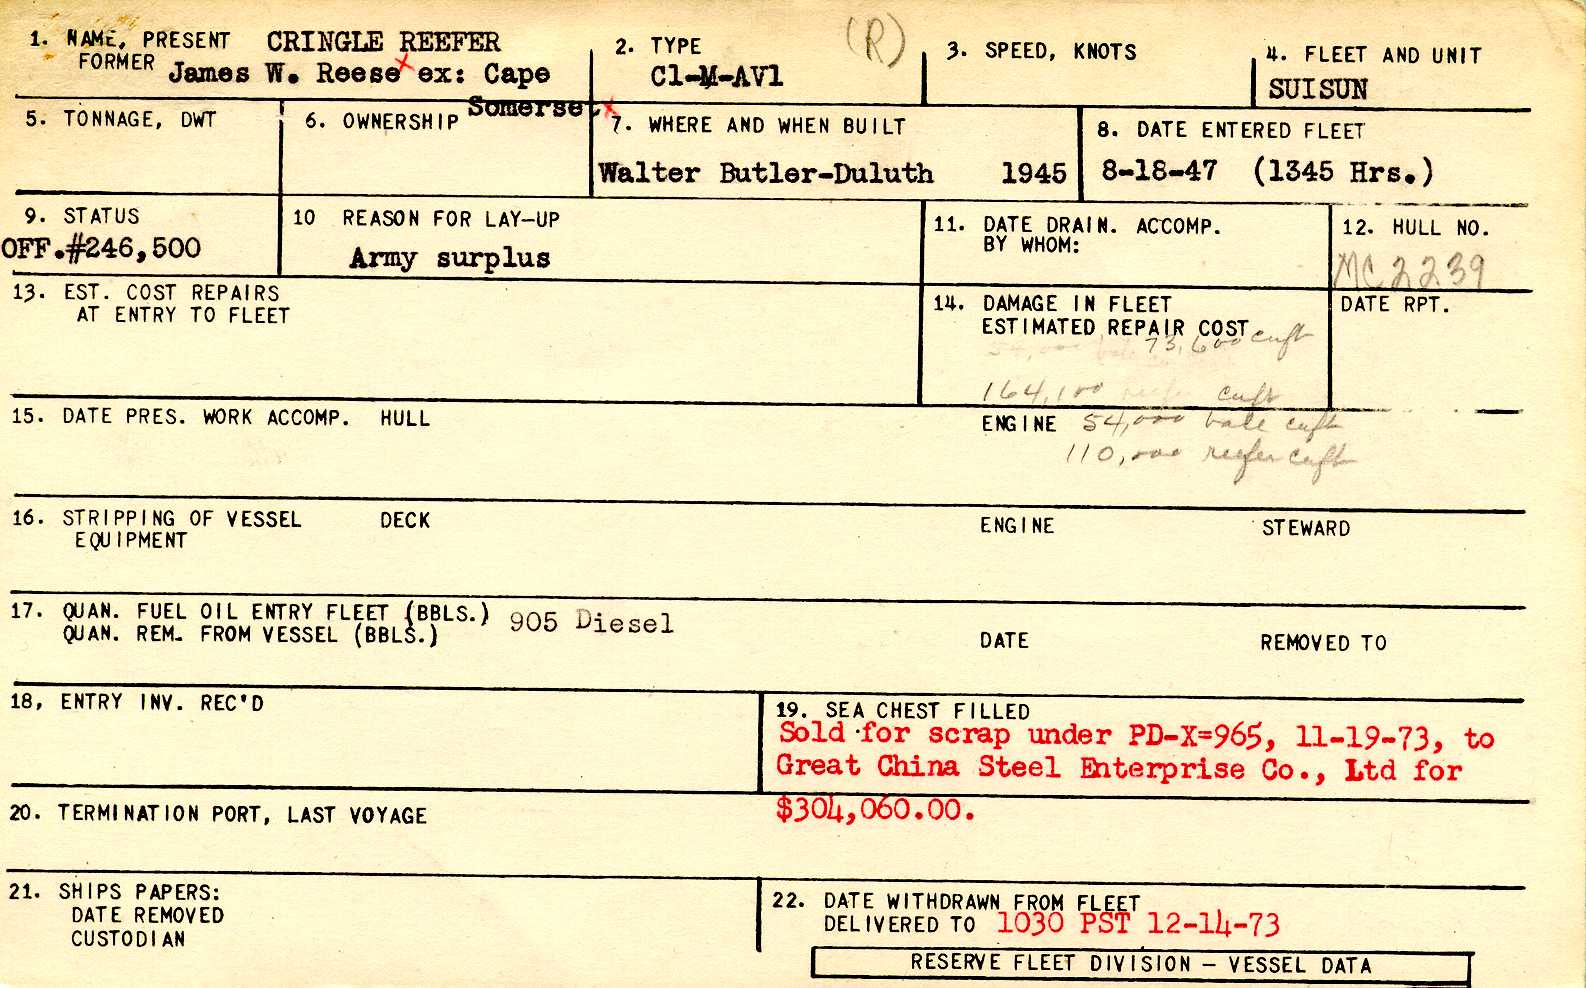 1. NAME, PRESENT CRINGLE REEFER
FORMER James W. Reese x ex: Cape
Somerset x
2. TYPE (R)
C1-M-AV1
3. SPEED, KNOTS
4. FLEET AND UNIT
SUISUN
5. TONNAGE, DWT
6. OWNERSHIP
7. WHERE AND WHEN BUILT
Walter Butler-Duluth 1945
8. DATE ENTERED FLEET
8-18-47 (1345 Hrs.)
9. STATUS
OFF.#246,500
10 REASON FOR LAY-UP
Army surplus
11. DATE DRAIN. ACCOMP.
BY WHOM:
12. HULL NO.
MC 2239
13. EST. COST REPAIRS
AT ENTRY TO FLEET
14. DAMAGE IN FLEET
ESTIMATED REPAIR COST
DATE RPT.
54,000 bale 73,600 cuft
164,100 reefer cuft
15. DATE PRES. WORK ACCOMP. HULL
ENGINE 54,000 bale cuft
110,000 reefer cuft
16. STRIPPING OF VESSEL DECK ENGINE STEWARD
EQUIPMENT
17. QUAN. FUEL OIL ENTRY FLEET (BBLS.) 905 Diesel
QUAN. REM. FROM VESSEL (BBLS.) DATE REMOVED TO
18, ENTRY INV. REC'D
19. SEA CHEST FILLED
Sold for scrap under PD-X=965, 11-19-73, to
Great China Steel Enterprise Co., Ltd for
$304,060.00.
20. TERMINATION PORT, LAST VOYAGE
21. SHIPS PAPERS:
DATE REMOVED
CUSTODIAN
22. DATE WITHDRAWN FROM FLEET
DELIVERED TO 1030 PST 12-14-73
RESERVE FLEET DIVISION – VESSEL DATA